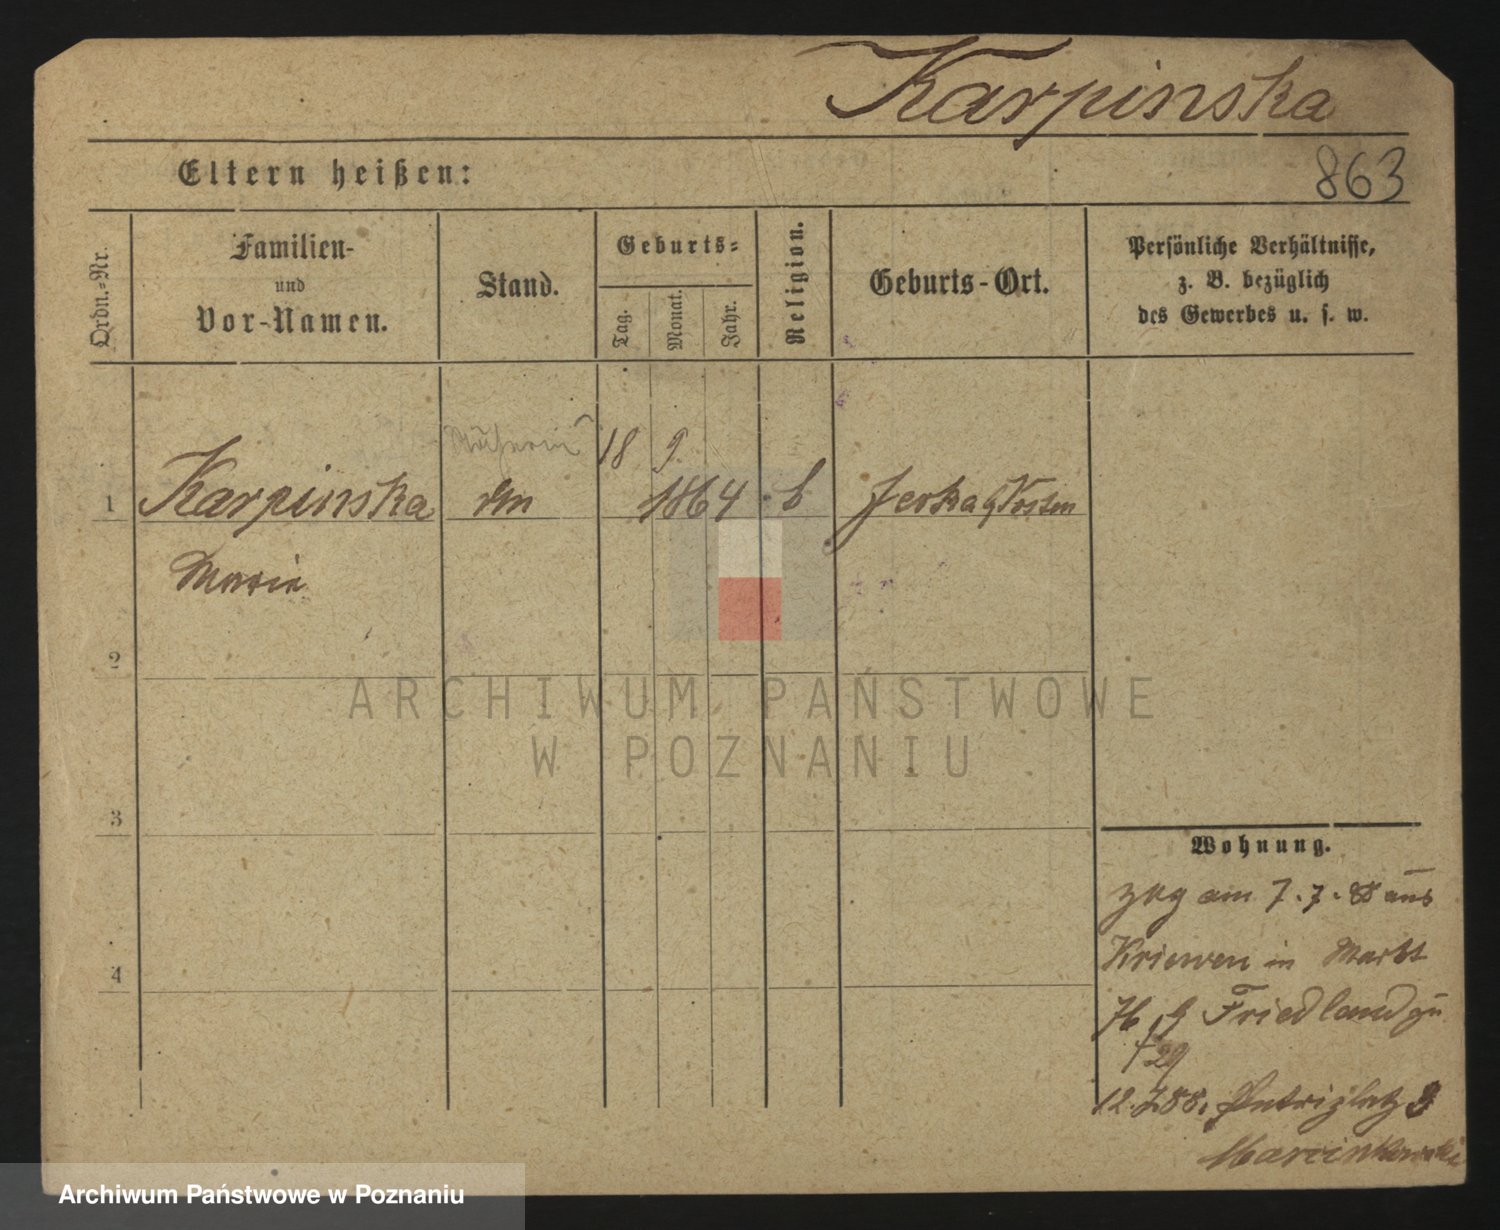 Karpinska
Eltern heißen:
863
Ordn.-Nr.
Familien-
und
Vor-Namen.
Stand.
Geburts-
Tag.
Monat.
Jahr.
Religion.
Geburts-Ort.
Persönliche Verhältnisse,
z. B. bezüglich
des Gewerbes u. s. w.
18 9.
1 Karpinska 1864 Jerka Kosten
Marie
2
3
4
ARCHIWUM PAŃSTWOWE
W POZNANIU
Wohnung.
zog am 7.7.88 aus
Kriewen in Markt
Friedland
12.7.88. Petriplatz 3
Marcinkowski
Archiwum Państwowe w Poznaniu